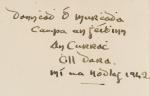 Domhnall Ó Murcada
Campa an Géibinn
An Currac
Cill Dara.
Mí na Nodlag 1942.